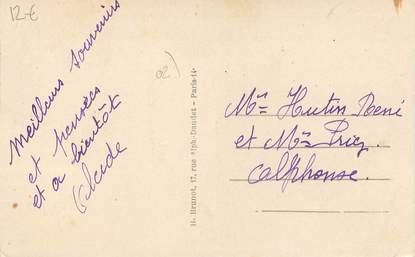 12-€
02)
Meilleurs souvenirs
et pensées
et a bientôt
Alcide
H. Brunot, 17, rue Alph.-Daudet - Paris-14ᵉ
Mʳ Hutin René
et Mʳ Priez
Alphonse.